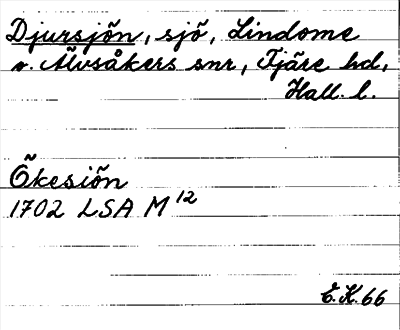 Djursjön, sjö, Lindome
o. Älvsåkers snr, Fjäre hd,
Hall. l.
Ökesiön
1702 LSA M 12
E.K. 66